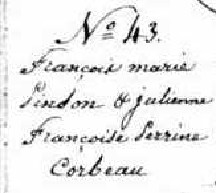 N.o 43.
François marie
Pindon & julienne
Françoise Perrine
Corbeau